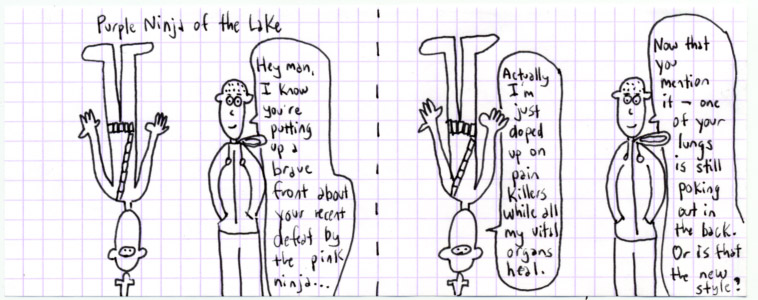 Purple Ninja of the Lake
Hey man,
I know
you're
putting
up a
brave
front about
your recent
defeat by
the pink
ninja...
Actually
I'm
just
doped
up on
pain
killers
while all
my vital
organs
heal.
Now that
you
mention
it - one
of your
lungs
is still
poking
out in
the back.
Or is that
the new
style?